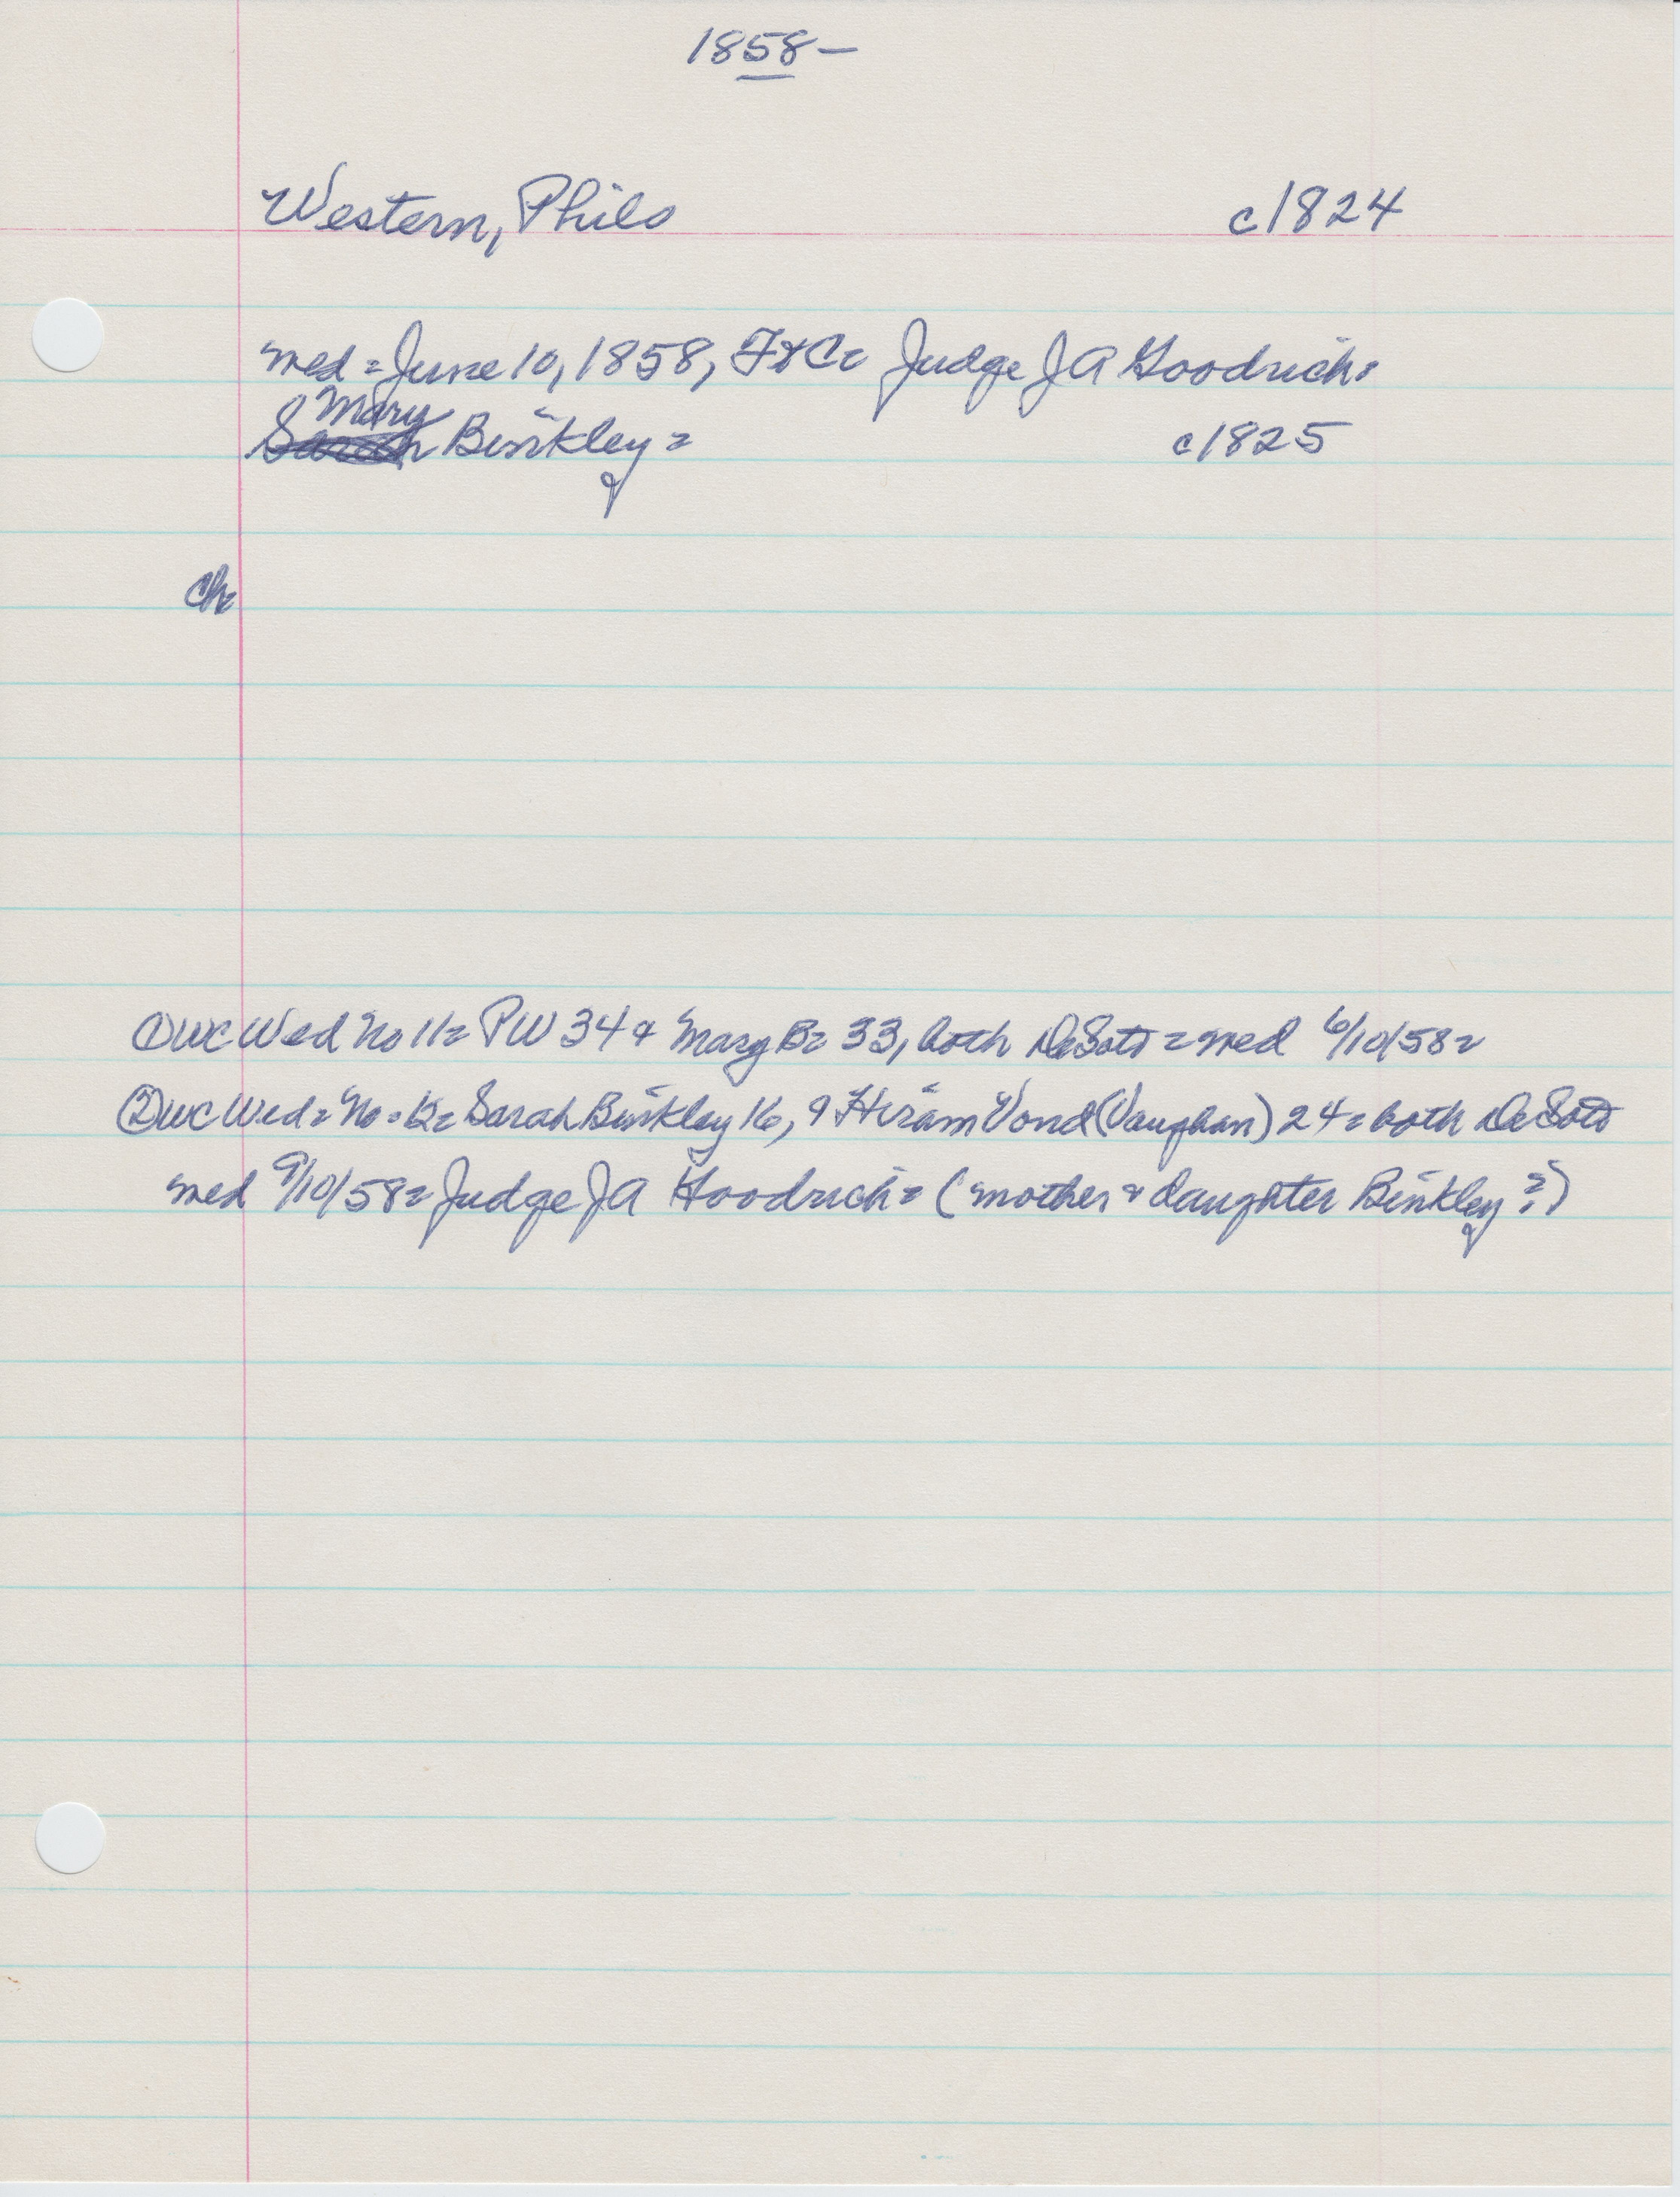 1858-
Western, Philo c1824
med = June 10, 1858, Ft C = Judge J A Goodrich =
Mary
Sarah Binkley = c1825
ch =
① WC Wed No 11 = PW 34 & Mary B = 33, both DeSoto = med 6/10/58 =
② WC Wed = No = 12 = Sarah Binkley 16, & Hiram Vond (Vaughan) 24 = both DeSoto
med 9/10/58 = Judge J A Goodrich = (mother & daughter Binkley?)